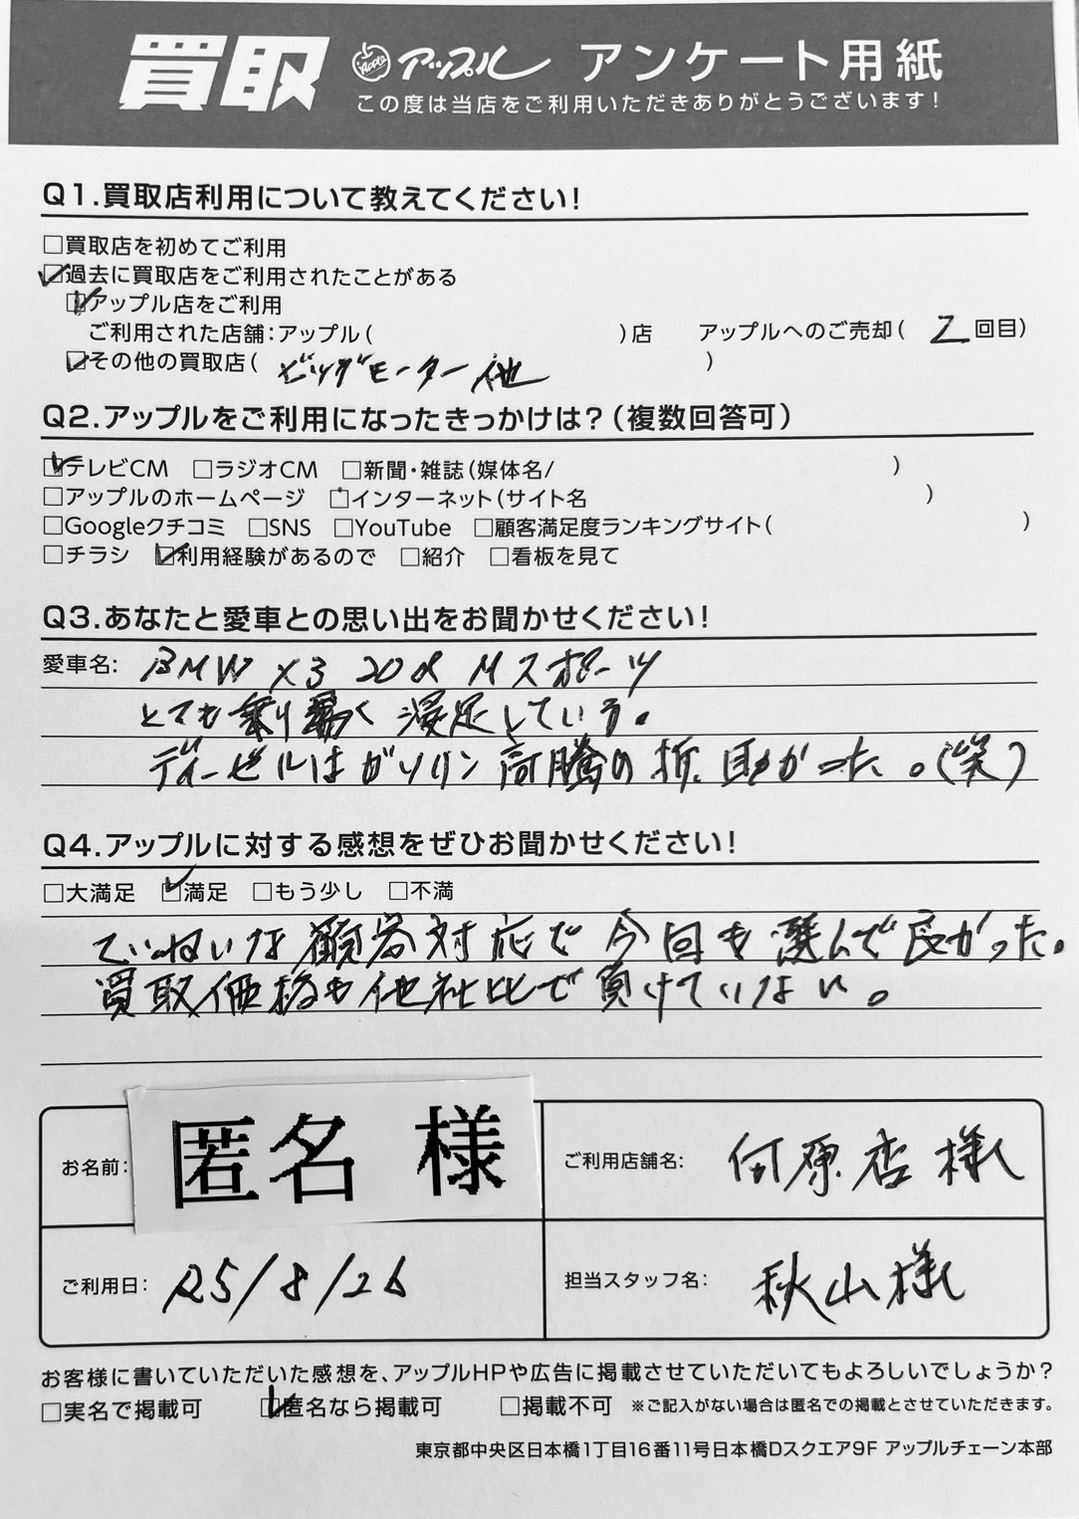 買取 Apple アップル アンケート用紙
この度は当店をご利用いただきありがとうございます!
Q1.買取店利用について教えてください!
□買取店を初めてご利用
☑過去に買取店をご利用されたことがある
☑アップル店をご利用
ご利用された店舗:アップル( )店 アップルへのご売却( 2 回目)
☑その他の買取店( ビッグモーター他 )
Q2.アップルをご利用になったきっかけは?(複数回答可)
☑テレビCM □ラジオCM □新聞・雑誌(媒体名/ )
□アップルのホームページ □インターネット(サイト名 )
□Googleクチコミ □SNS □YouTube □顧客満足度ランキングサイト( )
□チラシ ☑利用経験があるので □紹介 □看板を見て
Q3.あなたと愛車との思い出をお聞かせください!
愛車名: BMW X3 20d Mスポーツ
とても乗り易く満足している。
ディーゼルはガソリン高騰の折、助かった。(笑)
Q4.アップルに対する感想をぜひお聞かせください!
□大満足 ☑満足 □もう少し □不満
ていねいな顧客対応で今回も選んで良かった。
買取価格も他社比で負けていない。
お名前: 匿名 様 ご利用店舗名: 店 様
ご利用日: R5/8/26 担当スタッフ名: 秋山様
お客様に書いていただいた感想を、アップルHPや広告に掲載させていただいてもよろしいでしょうか?
□実名で掲載可 ☑匿名なら掲載可 □掲載不可 ※ご記入がない場合は匿名での掲載とさせていただきます。
東京都中央区日本橋1丁目16番11号日本橋Dスクエア9F アップルチェーン本部